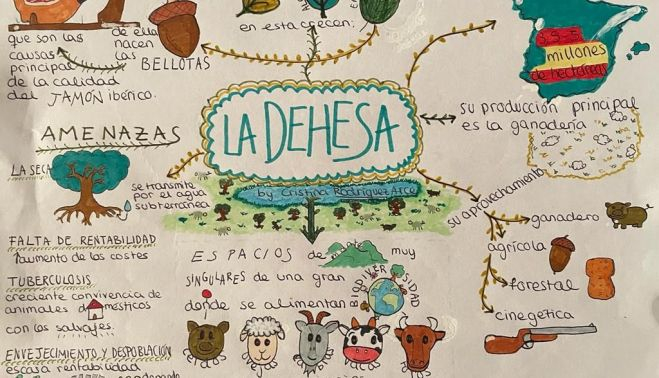 que son las
causas
principal
de la calidad
del JAMÓN ibérico.
de ella
nacen
las
BELLOTAS
en esta crecen:
3.5-5
millones
de hectáreas
su producción principal
es la ganadería
LA DEHESA
by Cristina Rodríguez Arce
AMENAZAS
LA SECA
se transmite
por el agua
subterránea
FALTA DE RENTABILIDAD
aumento de los costes
TUBERCULOSIS
creciente convivencia de
animales domésticos
con los salvajes.
ENVEJECIMIENTO Y DESPOBLACIÓN
escasa rentabilidad
ESPACIOS de muy
SINGULARES de una gran
BIODIVERSIDAD
donde se alimentan
cerdos
ovejas
cabras
vacas
su aprovechamiento
ganadero
agrícola
forestal
cinegética